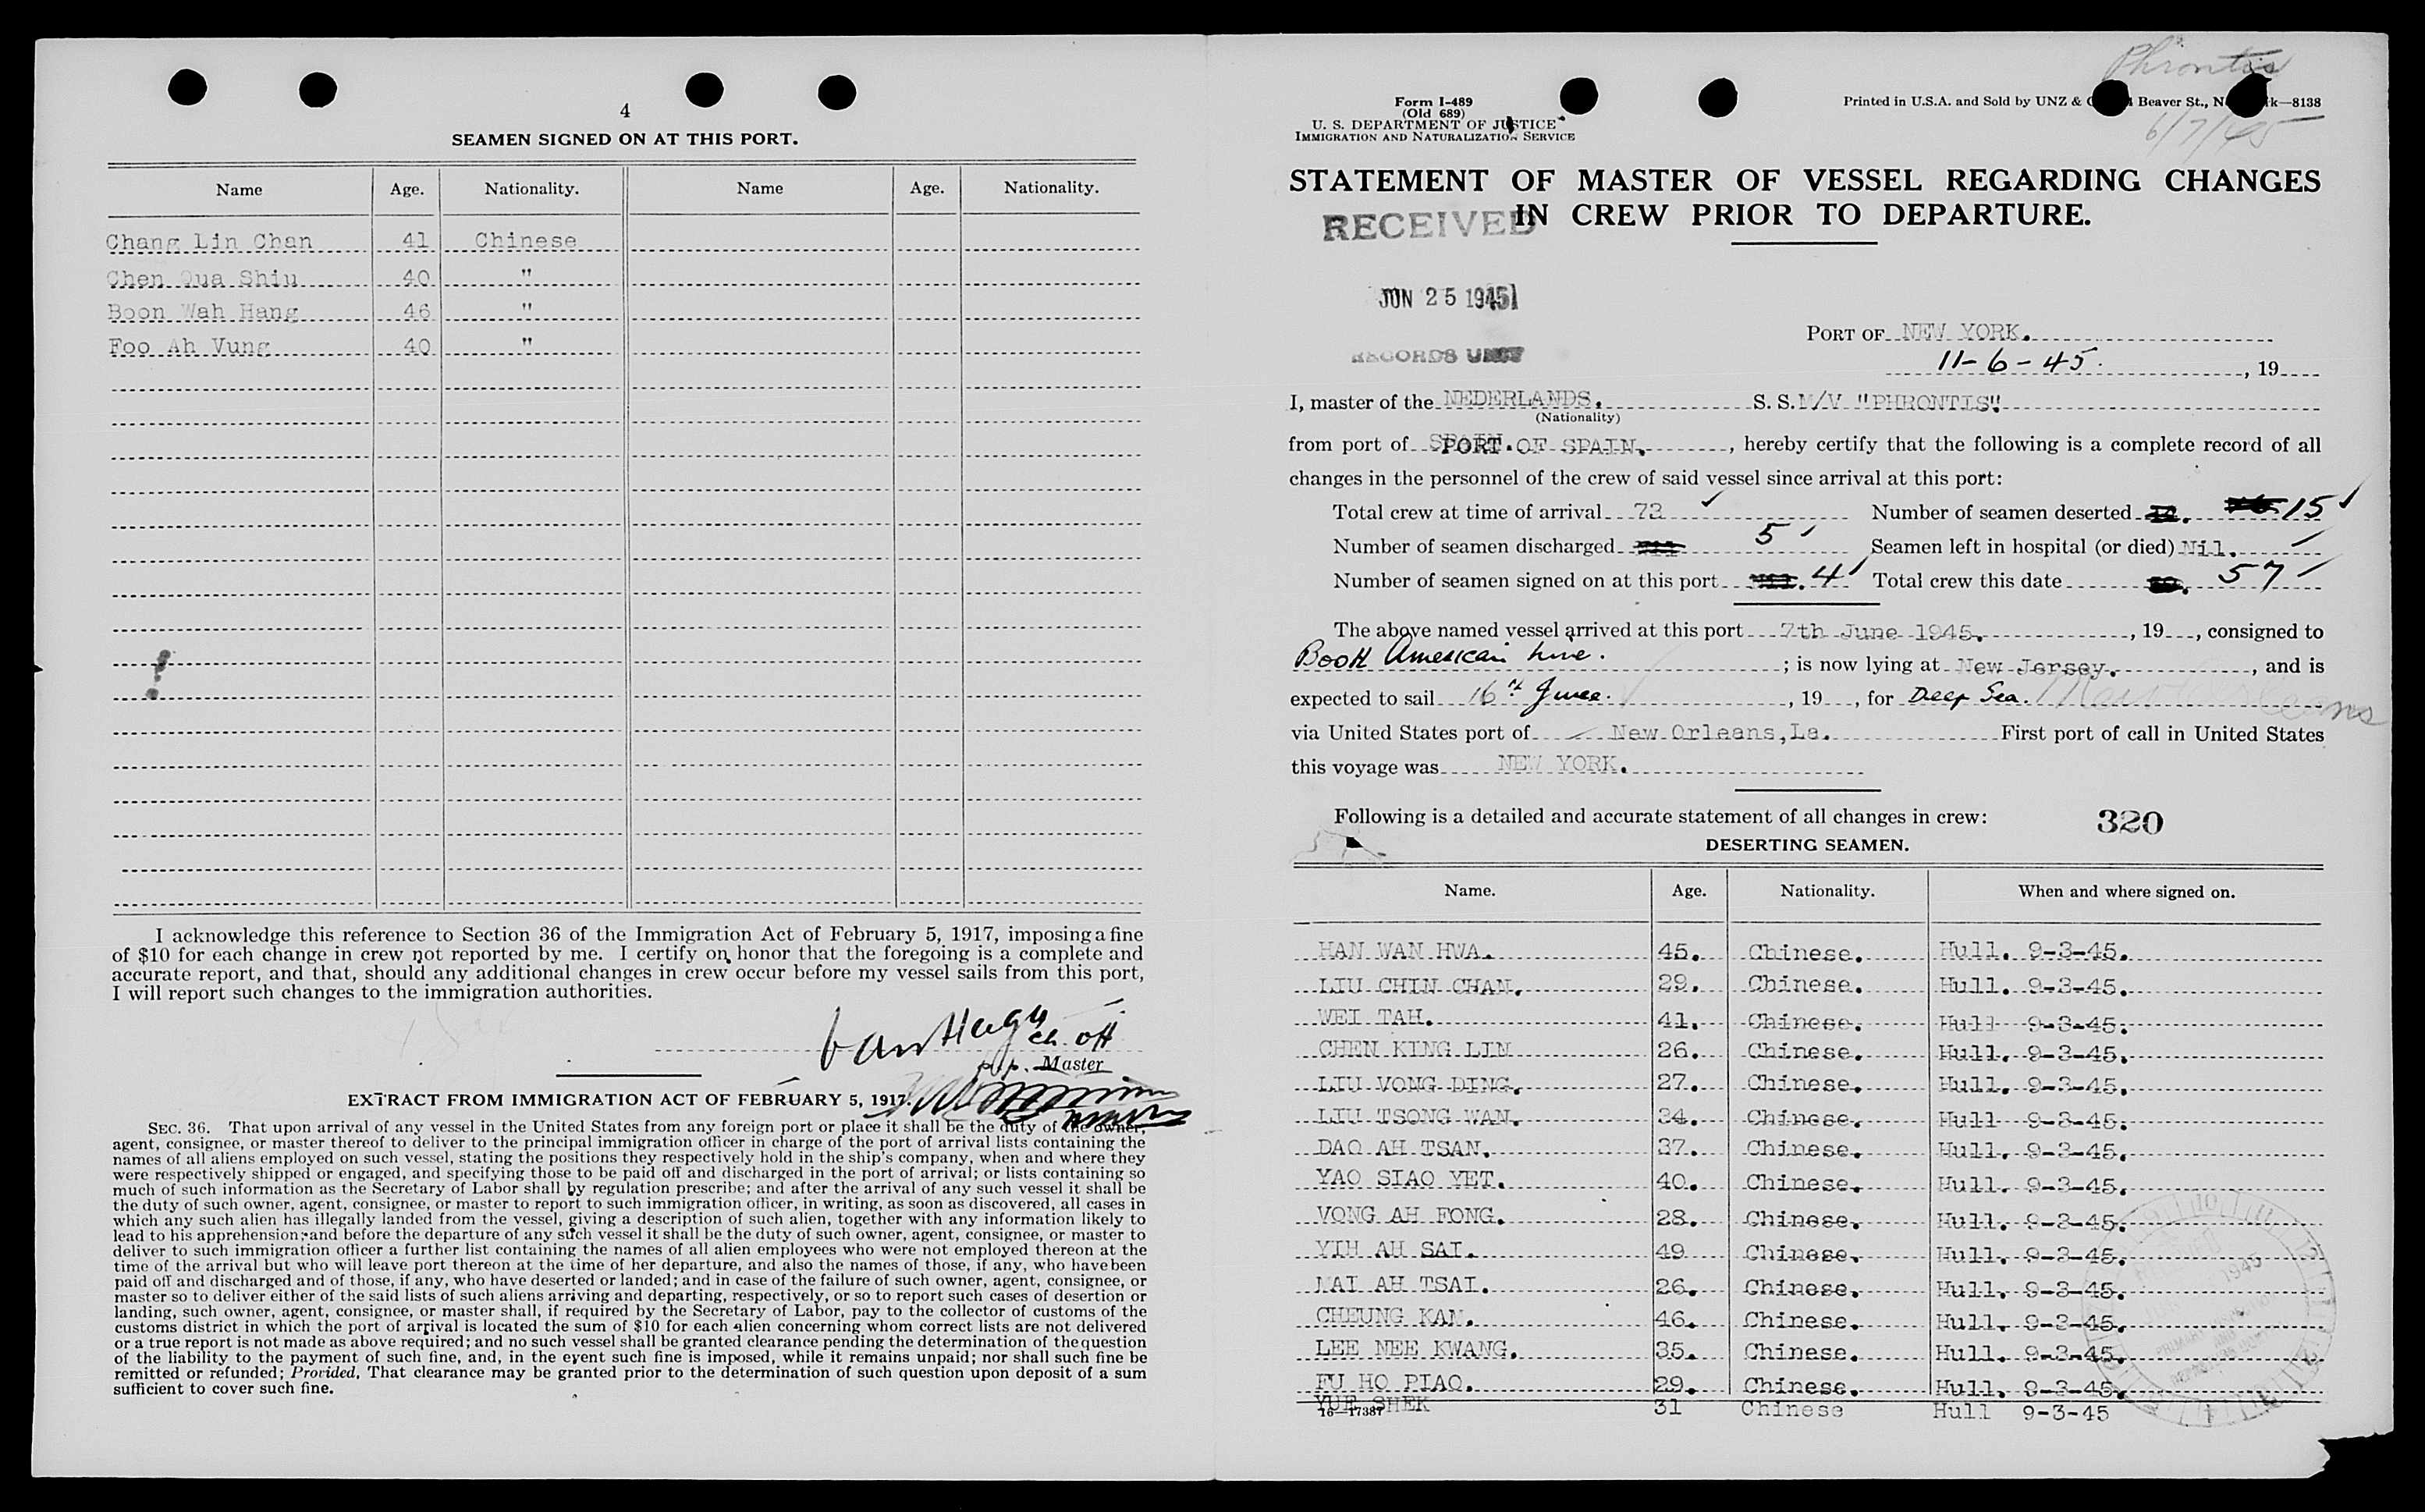 4
SEAMEN SIGNED ON AT THIS PORT.
Name Age. Nationality. Name Age. Nationality.
Chang Lin Chan 41 Chinese
Chen Qua Shiu 40 "
Boon Wah Hang 46 "
Foo Ah Vung 40 "
I acknowledge this reference to Section 36 of the Immigration Act of February 5, 1917, imposing a fine
of $10 for each change in crew not reported by me. I certify on honor that the foregoing is a complete and
accurate report, and that, should any additional changes in crew occur before my vessel sails from this port,
I will report such changes to the immigration authorities.
ch. off
p.p. Master
EXTRACT FROM IMMIGRATION ACT OF FEBRUARY 5, 1917.
SEC. 36. That upon arrival of any vessel in the United States from any foreign port or place it shall be the duty of the owner,
agent, consignee, or master thereof to deliver to the principal immigration officer in charge of the port of arrival lists containing the
names of all aliens employed on such vessel, stating the positions they respectively hold in the ship's company, when and where they
were respectively shipped or engaged, and specifying those to be paid off and discharged in the port of arrival; or lists containing so
much of such information as the Secretary of Labor shall by regulation prescribe; and after the arrival of any such vessel it shall be
the duty of such owner, agent, consignee, or master to report to such immigration officer, in writing, as soon as discovered, all cases in
which any such alien has illegally landed from the vessel, giving a description of such alien, together with any information likely to
lead to his apprehension; and before the departure of any such vessel it shall be the duty of such owner, agent, consignee, or master to
deliver to such immigration officer a further list containing the names of all alien employees who were not employed thereon at the
time of the arrival but who will leave port thereon at the time of her departure, and also the names of those, if any, who have been
paid off and discharged and of those, if any, who have deserted or landed; and in case of the failure of such owner, agent, consignee, or
master so to deliver either of the said lists of such aliens arriving and departing, respectively, or so to report such cases of desertion or
landing, such owner, agent, consignee, or master shall, if required by the Secretary of Labor, pay to the collector of customs of the
customs district in which the port of arrival is located the sum of $10 for each alien concerning whom correct lists are not delivered
or a true report is not made as above required; and no such vessel shall be granted clearance pending the determination of the question
of the liability to the payment of such fine, and, in the event such fine is imposed, while it remains unpaid; nor shall such fine be
remitted or refunded; Provided, That clearance may be granted prior to the determination of such question upon deposit of a sum
sufficient to cover such fine.
Phrontis
6/7/45
Form I-489
(Old 689)
U. S. DEPARTMENT OF JUSTICE
IMMIGRATION AND NATURALIZATION SERVICE
Printed in U.S.A. and Sold by UNZ & Beaver St., 8138
STATEMENT OF MASTER OF VESSEL REGARDING CHANGES
IN CREW PRIOR TO DEPARTURE.
RECEIVED
JUN 25 1945
RECORDS UNIT
PORT OF NEW YORK.
11-6-45. , 19
I, master of the NEDERLANDS. S. S. M/V "PHRONTIS"
(Nationality)
from port of PORT OF SPAIN. , hereby certify that the following is a complete record of all
changes in the personnel of the crew of said vessel since arrival at this port:
Total crew at time of arrival 73 Number of seamen deserted 15
Number of seamen discharged 5 Seamen left in hospital (or died) Nil.
Number of seamen signed on at this port 4 Total crew this date 57
The above named vessel arrived at this port 7th June 1945. , 19 , consigned to
Booth American Line. ; is now lying at New Jersey. , and is
expected to sail 16th June. , 19 , for Deep Sea.
via United States port of New Orleans, La. First port of call in United States
this voyage was NEW YORK.
Following is a detailed and accurate statement of all changes in crew: 320
DESERTING SEAMEN.
Name. Age. Nationality. When and where signed on.
HAN WAN HWA. 45. Chinese. Hull. 9-3-45.
LIU CHIN CHAN. 29. Chinese. Hull. 9-3-45.
WEI TAH. 41. Chinese. Hull 9-3-45.
CHEN KING LIN 26. Chinese. Hull. 9-3-45.
LIU VONG DING. 27. Chinese. Hull. 9-3-45.
LIU TSONG WAN. 34. Chinese. Hull 9-3-45.
DAO AH TSAN. 37. Chinese. Hull. 9-3-45.
YAO SIAO YET. 40. Chinese. Hull. 9-3-45.
VONG AH FONG. 28. Chinese. Hull. 9-3-45.
YIH AH SAI. 49 Chinese. Hull. 9-3-45.
MAI AH TSAI. 26. Chinese. Hull. 9-3-45.
CHEUNG KAM. 46. Chinese. Hull. 9-3-45.
LEE NEE KWANG. 35. Chinese. Hull. 9-3-45.
FU HO PIAO. 29. Chinese. Hull. 9-3-45.
YUE SHEK 31 Chinese Hull 9-3-45
16—17387